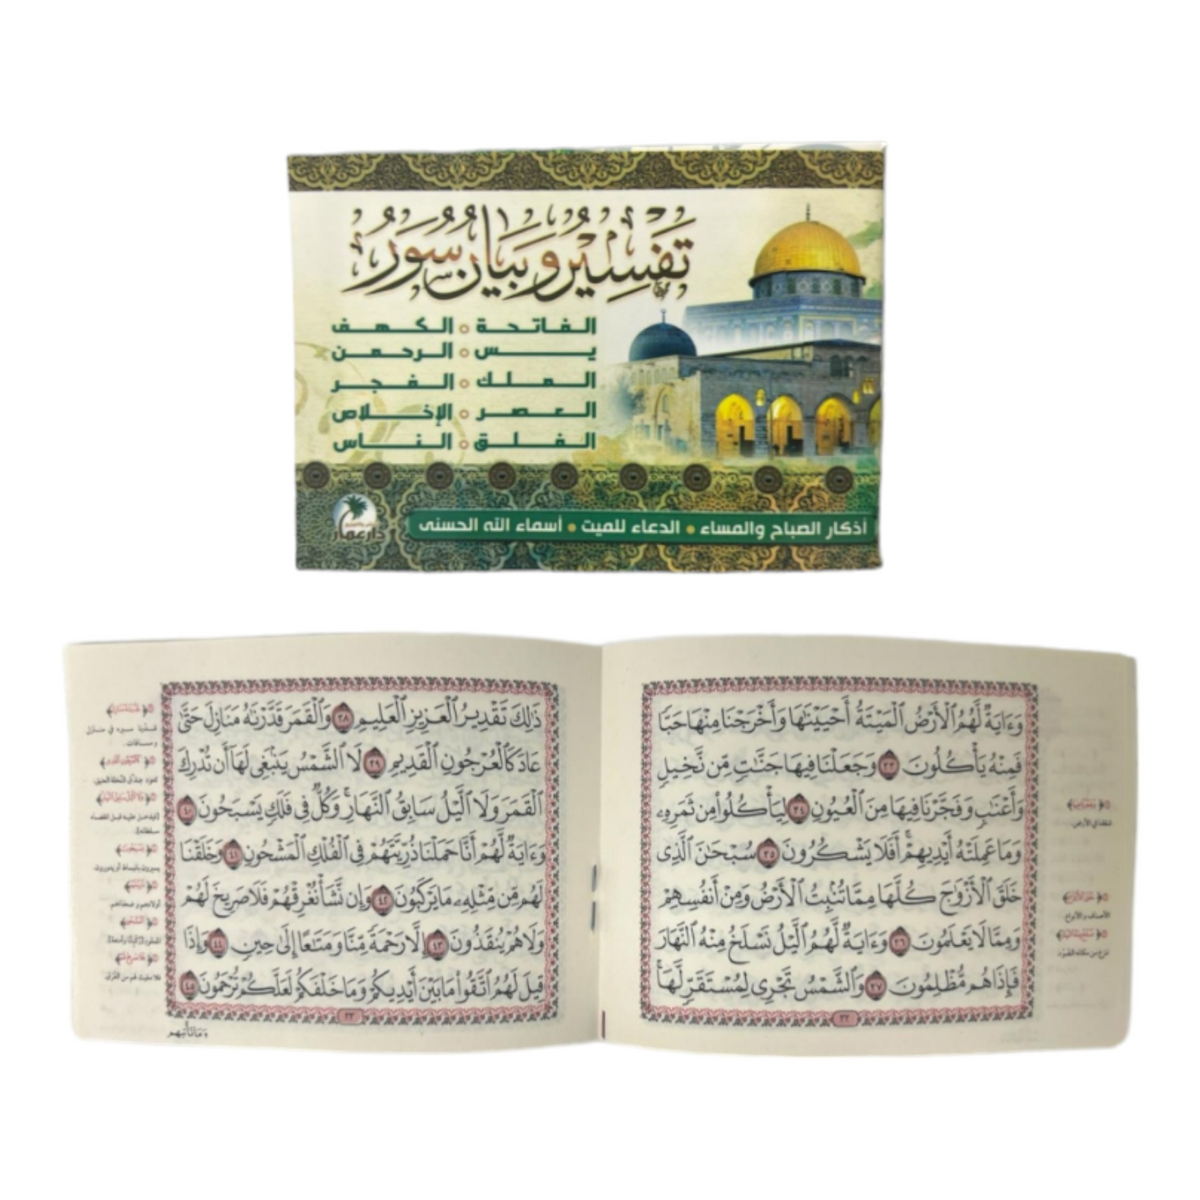 تفسير وبيان سور
الفاتحة • الكهف
يس • الرحمن
الملك • الفجر
العصر • الإخلاص
الفلق • الناس
أذكار الصباح والمساء • الدعاء للميت • أسماء الله الحسنى
دار عمار
وَءَايَةٌ لَّهُمُ ٱلْأَرْضُ ٱلْمَيْتَةُ أَحْيَيْنَٰهَا وَأَخْرَجْنَا مِنْهَا حَبًّا
فَمِنْهُ يَأْكُلُونَ ٣٣ وَجَعَلْنَا فِيهَا جَنَّٰتٍ مِّن نَّخِيلٍ
وَأَعْنَٰبٍ وَفَجَّرْنَا فِيهَا مِنَ ٱلْعُيُونِ ٣٤ لِيَأْكُلُوا۟ مِن ثَمَرِهِۦ
وَمَا عَمِلَتْهُ أَيْدِيهِمْ ۖ أَفَلَا يَشْكُرُونَ ٣٥ سُبْحَٰنَ ٱلَّذِى
خَلَقَ ٱلْأَزْوَٰجَ كُلَّهَا مِمَّا تُنۢبِتُ ٱلْأَرْضُ وَمِنْ أَنفُسِهِمْ
وَمِمَّا لَا يَعْلَمُونَ ٣٦ وَءَايَةٌ لَّهُمُ ٱلَّيْلُ نَسْلَخُ مِنْهُ ٱلنَّهَارَ
فَإِذَا هُم مُّظْلِمُونَ ٣٧ وَٱلشَّمْسُ تَجْرِى لِمُسْتَقَرٍّ لَّهَا ۚ
٢٢
ذَٰلِكَ تَقْدِيرُ ٱلْعَزِيزِ ٱلْعَلِيمِ ٣٨ وَٱلْقَمَرَ قَدَّرْنَٰهُ مَنَازِلَ حَتَّىٰ
عَادَ كَٱلْعُرْجُونِ ٱلْقَدِيمِ ٣٩ لَا ٱلشَّمْسُ يَنۢبَغِى لَهَآ أَن تُدْرِكَ
ٱلْقَمَرَ وَلَا ٱلَّيْلُ سَابِقُ ٱلنَّهَارِ ۚ وَكُلٌّ فِى فَلَكٍ يَسْبَحُونَ ٤٠
وَءَايَةٌ لَّهُمْ أَنَّا حَمَلْنَا ذُرِّيَّتَهُمْ فِى ٱلْفُلْكِ ٱلْمَشْحُونِ ٤١ وَخَلَقْنَا
لَهُم مِّن مِّثْلِهِۦ مَا يَرْكَبُونَ ٤٢ وَإِن نَّشَأْ نُغْرِقْهُمْ فَلَا صَرِيخَ لَهُمْ
وَلَا هُمْ يُنقَذُونَ ٤٣ إِلَّا رَحْمَةً مِّنَّا وَمَتَٰعًا إِلَىٰ حِينٍ ٤٤ وَإِذَا
قِيلَ لَهُمُ ٱتَّقُوا۟ مَا بَيْنَ أَيْدِيكُمْ وَمَا خَلْفَكُمْ لَعَلَّكُمْ تُرْحَمُونَ ٤٥
٢٣